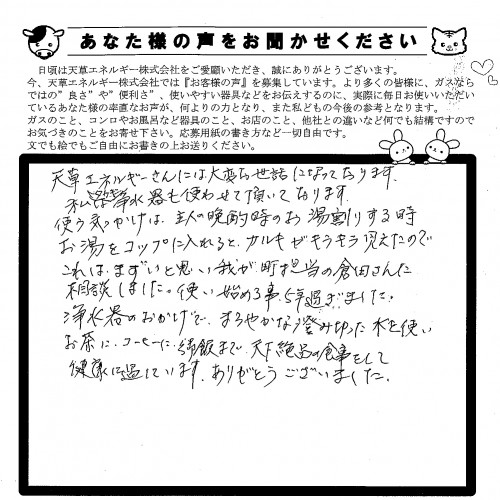 あなた様の声をお聞かせください
日頃は天草エネルギー株式会社をご愛顧いただき、誠にありがとうございます。
今、天草エネルギー株式会社では『お客様の声』を募集しています。より多くの皆様に、ガスなら
ではの"良さ"や"便利さ"、使いやすい器具などをお伝えするのに、実際に毎日お使いいただい
ているあなた様の率直なお声が、何よりの力となり、また私どもの今後の参考となります。
ガスのこと、コンロやお風呂など器具のこと、お店のこと、他社との違いなど何でも結構ですので
お気づきのことをお寄せ下さい。応募用紙の書き方など一切自由です。
文でも絵でもご自由にお書きの上お送りください。
天草エネルギーさんには大変お世話になっております。
私浄水器も使わせて頂いております。
使う気っかけは、主人の晩酌時のお湯割りする時
お湯をコップに入れると、カルキがキラキラ見えたので
これは、まずいと思い我が町担当の倉田さんに
相談しました。使い始める事5年過ぎました。
浄水器のおかげで、まろやかな澄み切った水を使い
お茶に、コーヒーに、御飯まで、天下絶品の食事をして
健康に過しています。ありがとうございました。